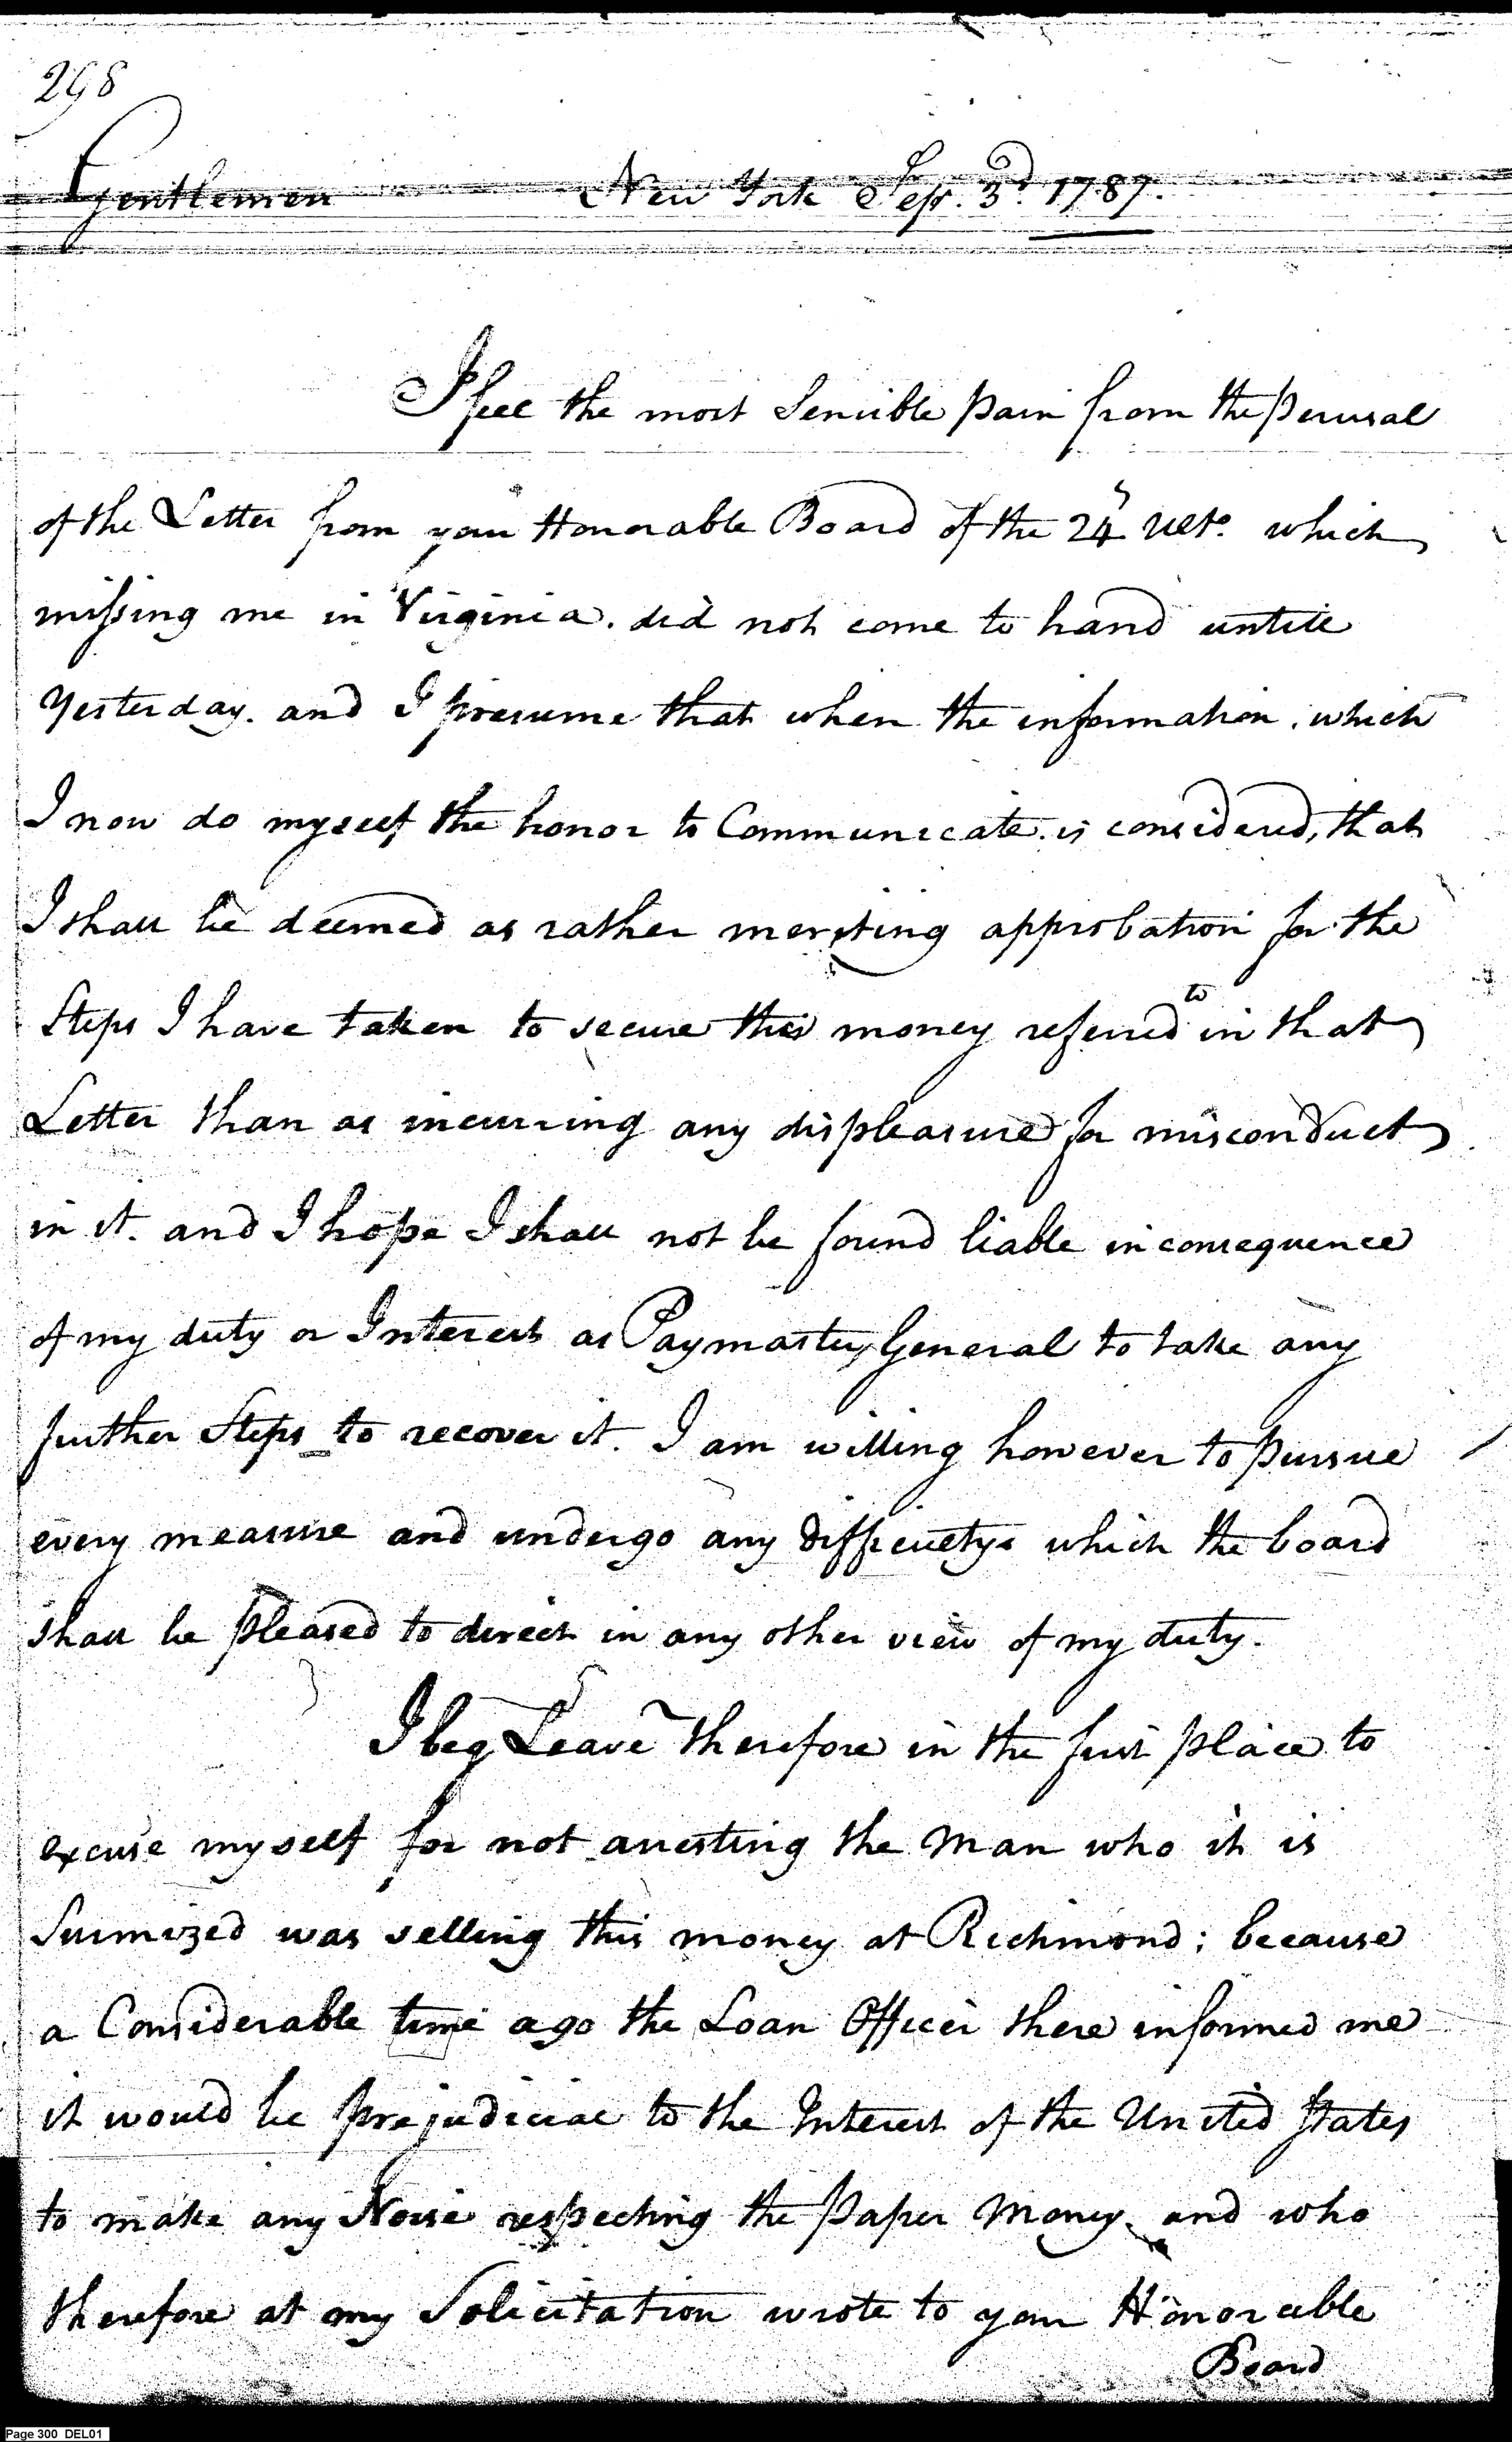 298
Gentlemen New York Sepr. 3d. 1787.
I feel the most Sensible pain from the perusal
of the Letter from your Honorable Board of the 24 Ulto. which
missing me in Virginia. did not come to hand untill
Yesterday. and I presume that when the information. which
I now do myself the honor to Communicate. is considered, that
I shall be deemed as rather meriting approbation for the
Steps I have taken to secure this money referred to in that
Letter than as incurring any displeasure for misconduct
in it. and I hope I shall not be found liable in consequence
of my duty or Interest as Paymaster General to take any
further Steps to recover it. I am willing however to pursue
every measure and undergo any difficultys which the board
shall be pleased to direct in any other view of my duty.
I beg Leave therefore in the first place to
excuse myself for not arresting the Man who it is
Surmized was selling this money at Richmond; because
a Considerable time ago the Loan Officer there informed me
it would be prejudicial to the Interest of the United States
to make any Noise respecting the paper Money. and who
therefore at my Solicitation wrote to your Honorable
Board
Page 300 DEL01